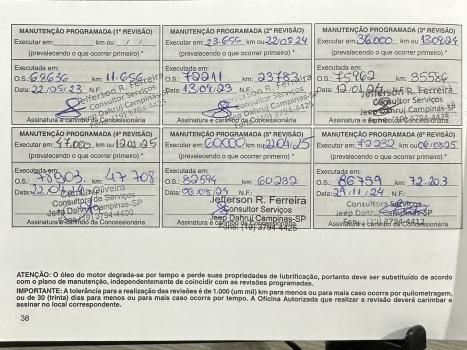 MANUTENÇÃO PROGRAMADA (1ª REVISÃO)
Executar em: km ou / /
(prevalecendo o que ocorrer primeiro) *
Executada em:
O.S.: 69636 km: 11.656
Data: 22/05/23 N.F.
Jefferson R. Ferreira
Consultor Serviços
Jeep Dahruj Campinas-SP
Assinatura e carimbo da Concessionária
MANUTENÇÃO PROGRAMADA (2ª REVISÃO)
Executar em: 23.656 km ou 22/05/24
(prevalecendo o que ocorrer primeiro) *
Executada em:
O.S.: 72211 km: 23783
Data: 13/09/23 N.F.
Jefferson R. Ferreira
Consultor Serviços
Jeep Dahruj Campinas-SP
(19) 3794-4425
Assinatura e carimbo da Concessionária
MANUTENÇÃO PROGRAMADA (3ª REVISÃO)
Executar em: 36.000 km ou 13/09/24
(prevalecendo o que ocorrer primeiro) *
Executada em:
O.S.: 75962 km: 35586
Data: 12/01/24 N.F.
Jefferson R. Ferreira
Consultor Serviços
Jeep Dahruj Campinas-SP
(19) 3794-4425
Assinatura e carimbo da Concessionária
MANUTENÇÃO PROGRAMADA (4ª REVISÃO)
Executar em: 47.000 km ou 12/01/25
(prevalecendo o que ocorrer primeiro) *
Executada em:
O.S.: 78803 km: 47 708
Data: 22/04/24 N.F.
Oliveira
Consultora de Serviços
Jeep Dahruj Campinas-SP
(19) 3794-4400
Assinatura e carimbo da Concessionária
MANUTENÇÃO PROGRAMADA (5ª REVISÃO)
Executar em: 60000 km ou 22/04/25
(prevalecendo o que ocorrer primeiro) *
Executada em:
O.S.: 82594 km: 60232
Data: 06/08/24 N.F.
Jefferson R. Ferreira
Consultor Serviços
Jeep Dahruj Campinas-SP
Fone: (19) 3794-4425
Assinatura e carimbo da Concessionária
MANUTENÇÃO PROGRAMADA (6ª REVISÃO)
Executar em: 72232 km ou 06/08/25
(prevalecendo o que ocorrer primeiro) *
Executada em:
O.S.: 86759 km: 72.203
Data: 29/11/24 N.F.
Consultora Serviços
Jeep Dahruj Campinas-SP
Assinatura e carimbo da Concessionária
ATENÇÃO: O óleo do motor degrada-se por tempo e perde suas propriedades de lubrificação, portanto deve ser substituído de acordo
com o plano de manutenção, independentemente de coincidir com as revisões programadas.
IMPORTANTE: A tolerância para a realização das revisões é de 1.000 (um mil) km para menos ou para mais caso ocorra por quilometragem,
ou de 30 (trinta) dias para menos ou para mais caso ocorra por tempo. A Oficina Autorizada que realizar a revisão deverá carimbar e
assinar no local correspondente.
38